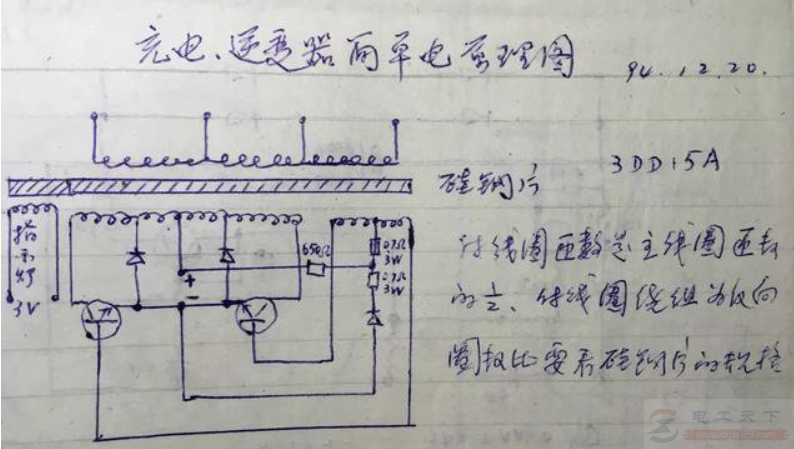 充电、逆变器简单电原理图
94.12.20.
硅钢片
3DD15A
付线圈匝数是主线圈匝数
的1/2、付线圈绕组为反向
圈数比要看硅钢片的规格
指示灯
3V
650Ω
0.7Ω
3W
0.7Ω
3W
+
-
电工天下